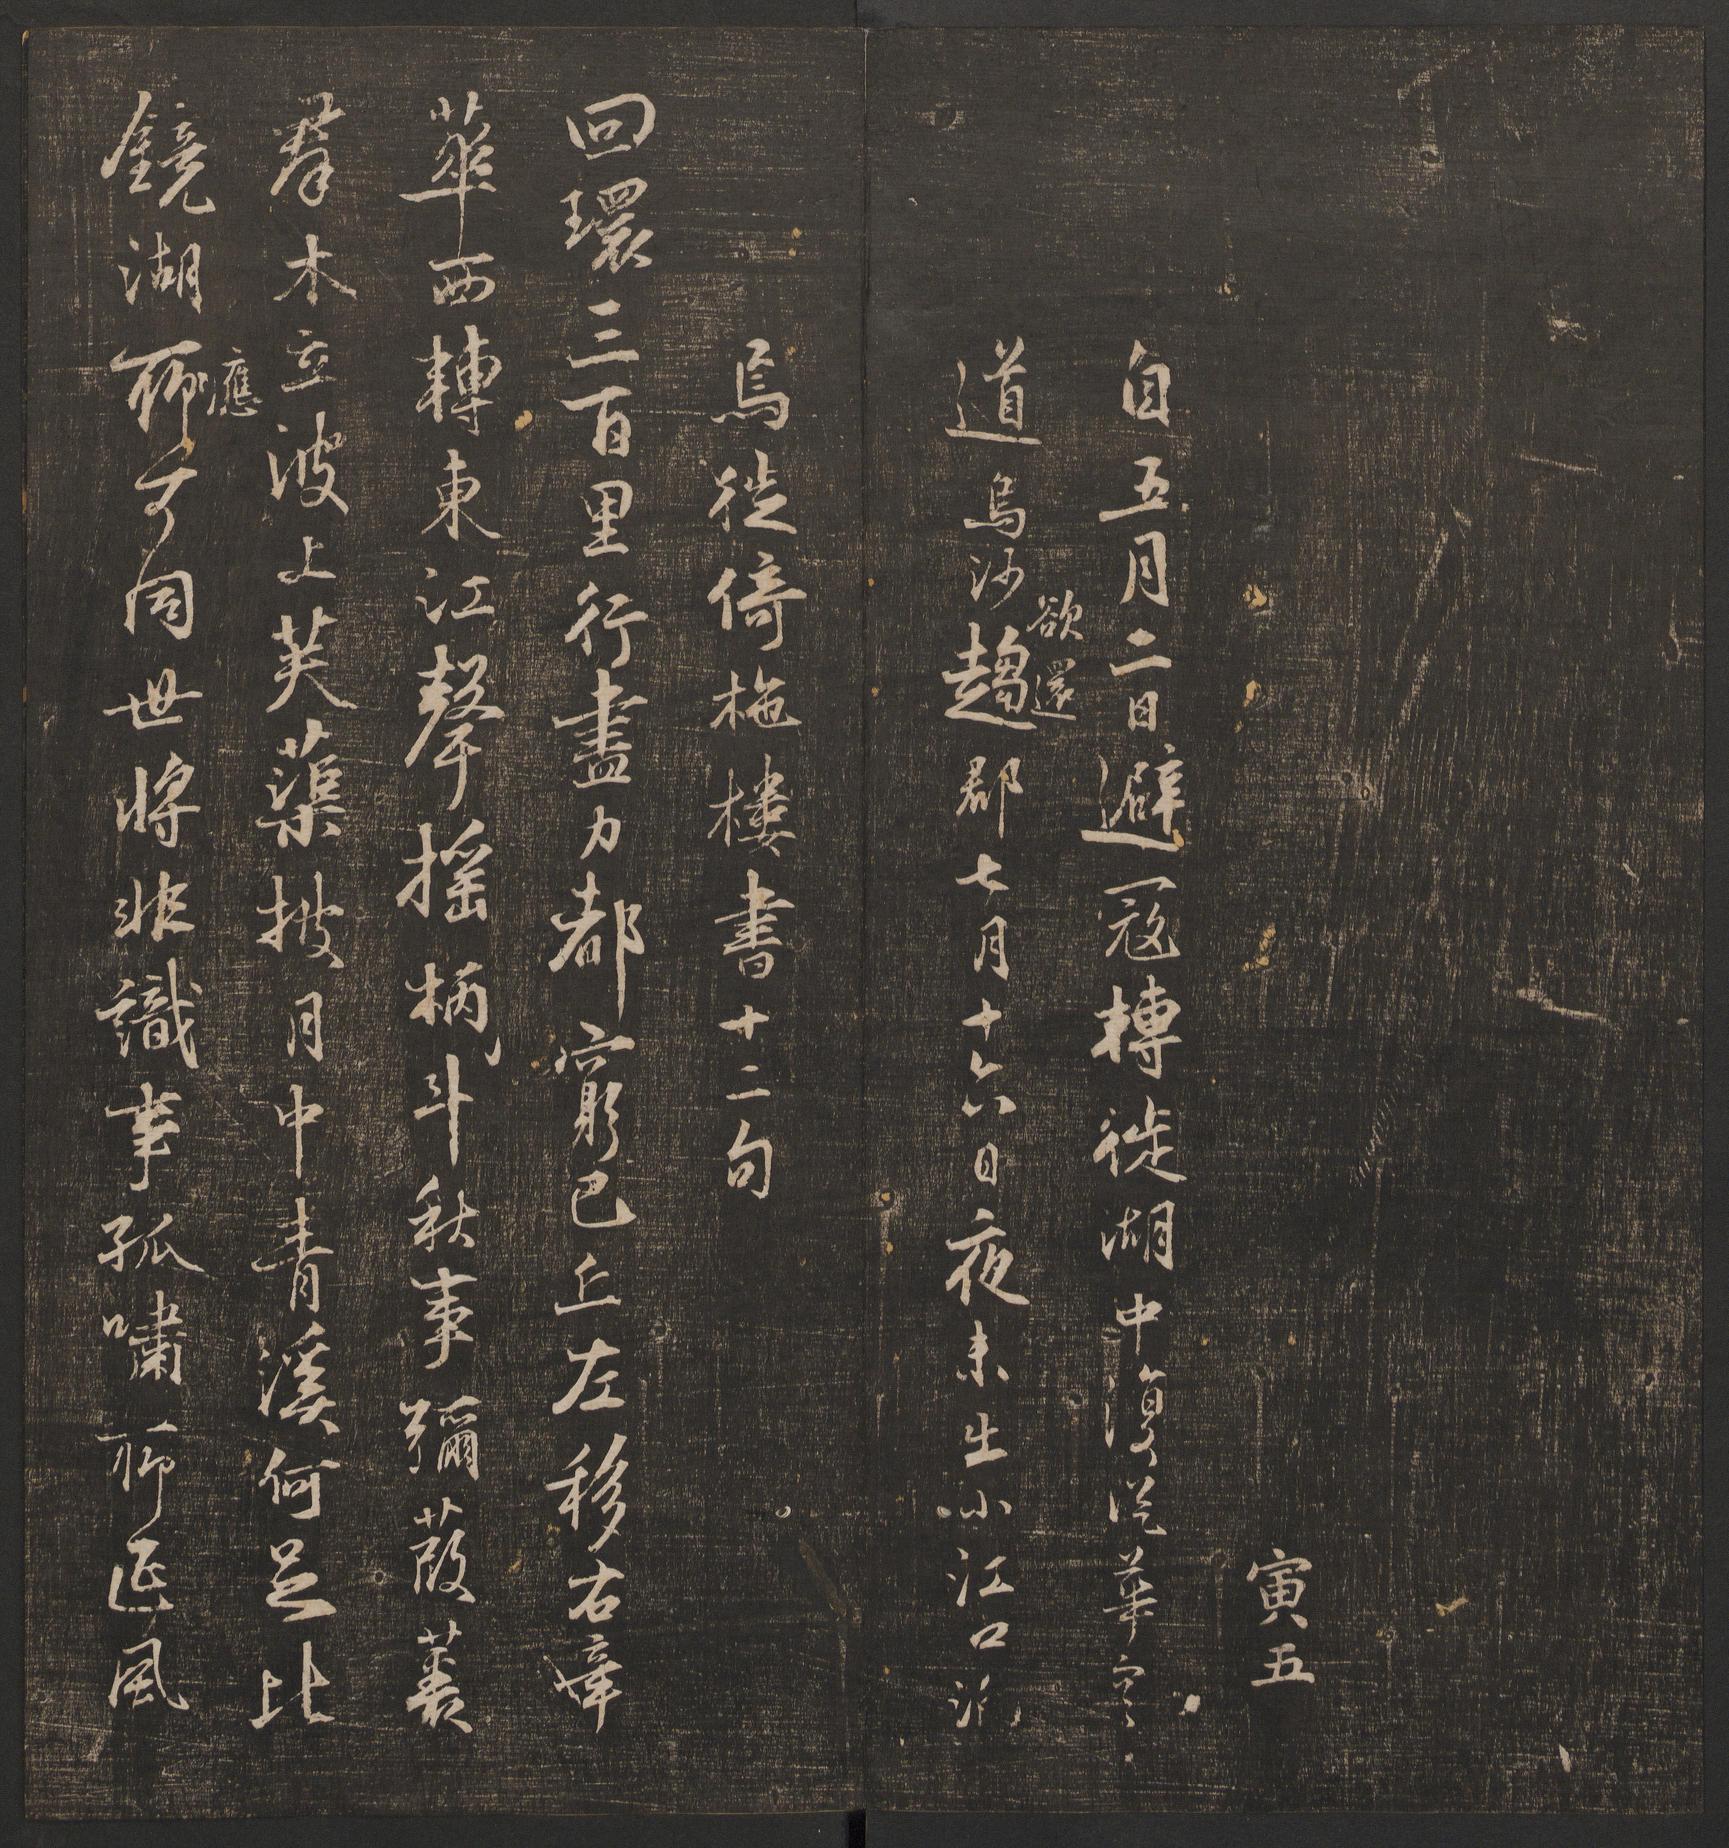 寅五
自五月二日避寇轉徙湖中復從華容
道烏沙欲還趨郡七月十六日夜未出小江口泊
焉徙倚柂樓書十二句
回環三百里行盡力都窮巴丘左移右章
華西轉東江聲搖柄斗秋事彌葭葓
群木立波上芙蕖披月中青溪何足比
鏡湖聊應可同世將非識事孤嘯聊延風